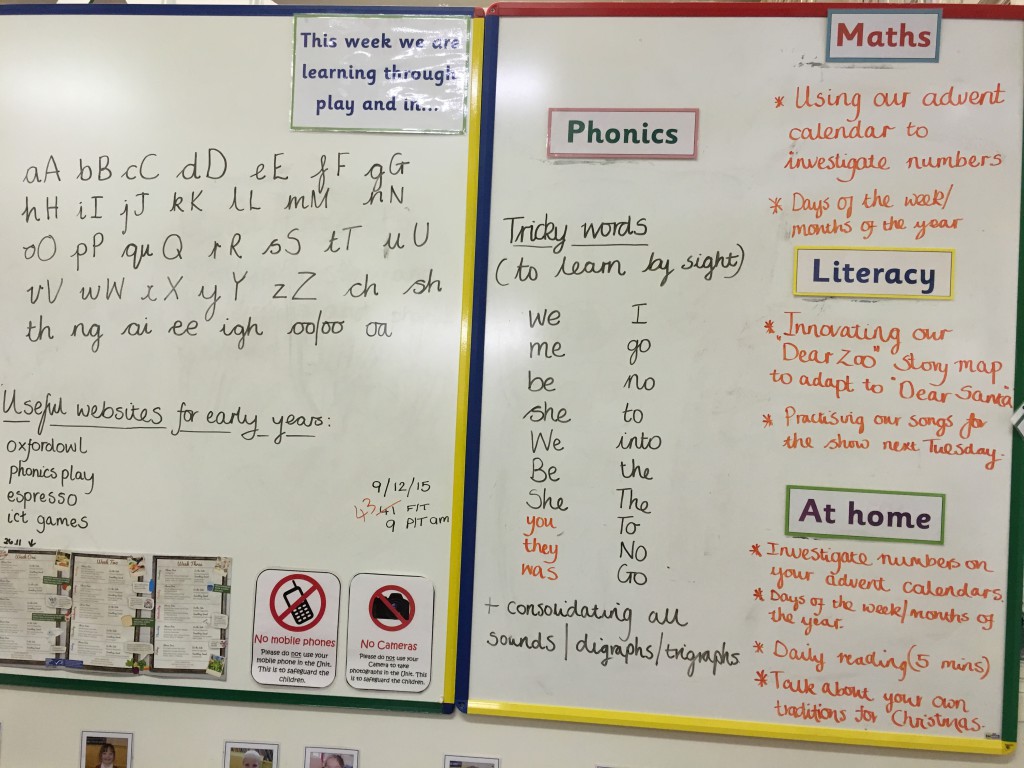 This week we are
learning through
play and in...
aA bB cC dD eE fF gG
hH iI jJ kK lL mM nN
oO pP qu Q rR sS tT uU
vV wW xX yY zZ ch sh
th ng ai ee igh oo/oo oa
Useful websites for early years:
oxfordowl
phonics play
espresso
ict games
9/12/15
43 41 F/T
9 P/T am
26.11
Week One
Week Two
Week Three
No mobile phones
Please do not use your
mobile phone in the Unit.
This is to safeguard the
children.
No Cameras
Please do not use your
Camera to take
photographs in the Unit. This
is to safeguard the children.
Phonics
Tricky words
(to learn by sight)
we I
me go
be no
she to
We into
Be the
She The
you To
they No
was Go
+ consolidating all
sounds | digraphs/trigraphs
Maths
* Using our advent
calendar to
investigate numbers
* Days of the week/
months of the year
Literacy
* Innovating our
"Dear Zoo" story map
to adapt to "Dear Santa"
* Practising our songs for
the show next Tuesday.
At home
* Investigate numbers on
your advent calendars.
* Days of the week/months of
the year.
* Daily reading (5 mins)
* Talk about your own
traditions for Christmas.